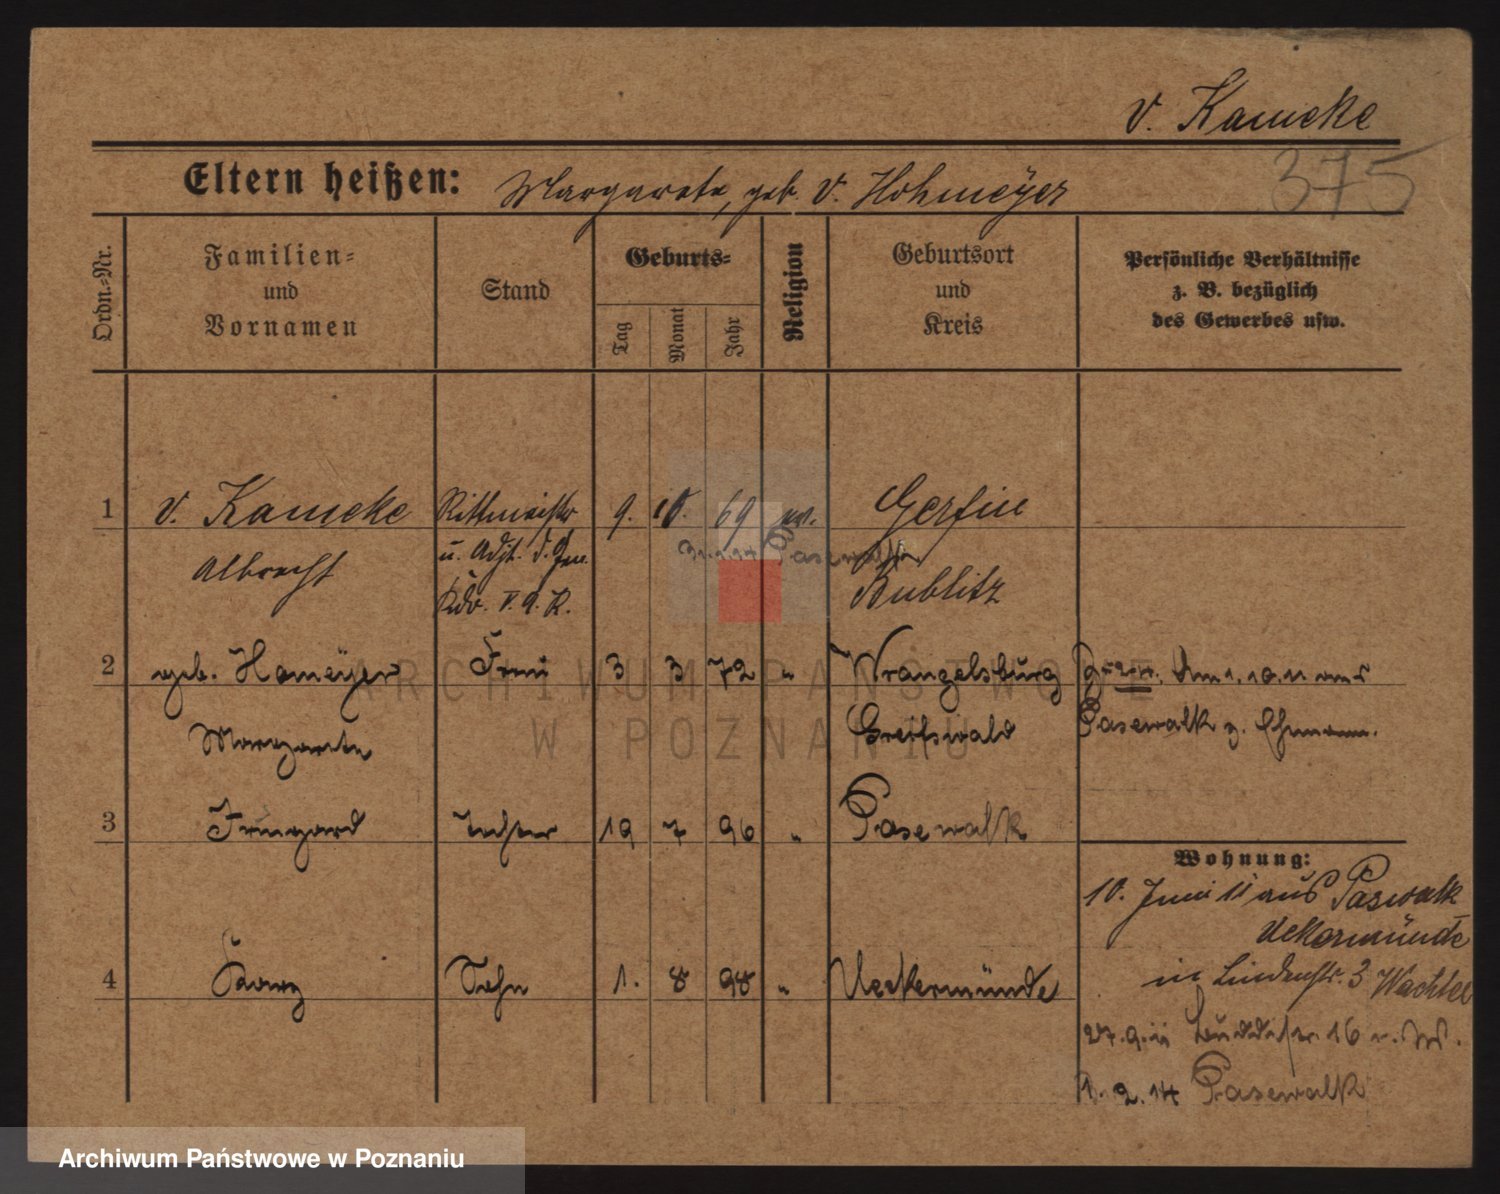 v. Kameke
375
Eltern heißen: Margarete, geb. v. Hohmeÿer
Ordn.-Nr.
Familien- und Vornamen
Stand
Geburts-
Tag
Monat
Jahr
Religion
Geburtsort und Kreis
Persönliche Verhältnisse
z. B. bezüglich
des Gewerbes usw.
1 v. Kameke Rittmeister 9. 10. 69 ev. Gerfin
Pasewalk
Albrecht u. Adjt. d. Gen. Bublitz
Kdo. V. A. K.
2 geb. Homeÿer Frau 3 3 72 " Wrangelsburg Am 1.10.11 aus
Margarete Greifswald Pasewalk z. Ehemann.
3 Irmgard Tochter 19 7 96 " Pasewalk
Wohnung:
10. Juni 11 aus Paswalk
Uekermünde
4 Georg Sohn 1. 8 98 " Ueckermünde
in Lindenstr. 3 Wachtel
27.9.11 16
1. 2. 14 Pasewalk
ARCHIWUM PAŃSTWOWE
W POZNANIU
Archiwum Państwowe w Poznaniu